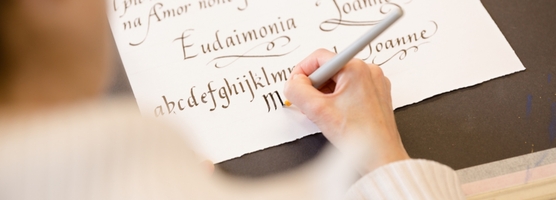 na Amor non
Joanne
Eudaimonia
Joanne
abcdefghijklm
m